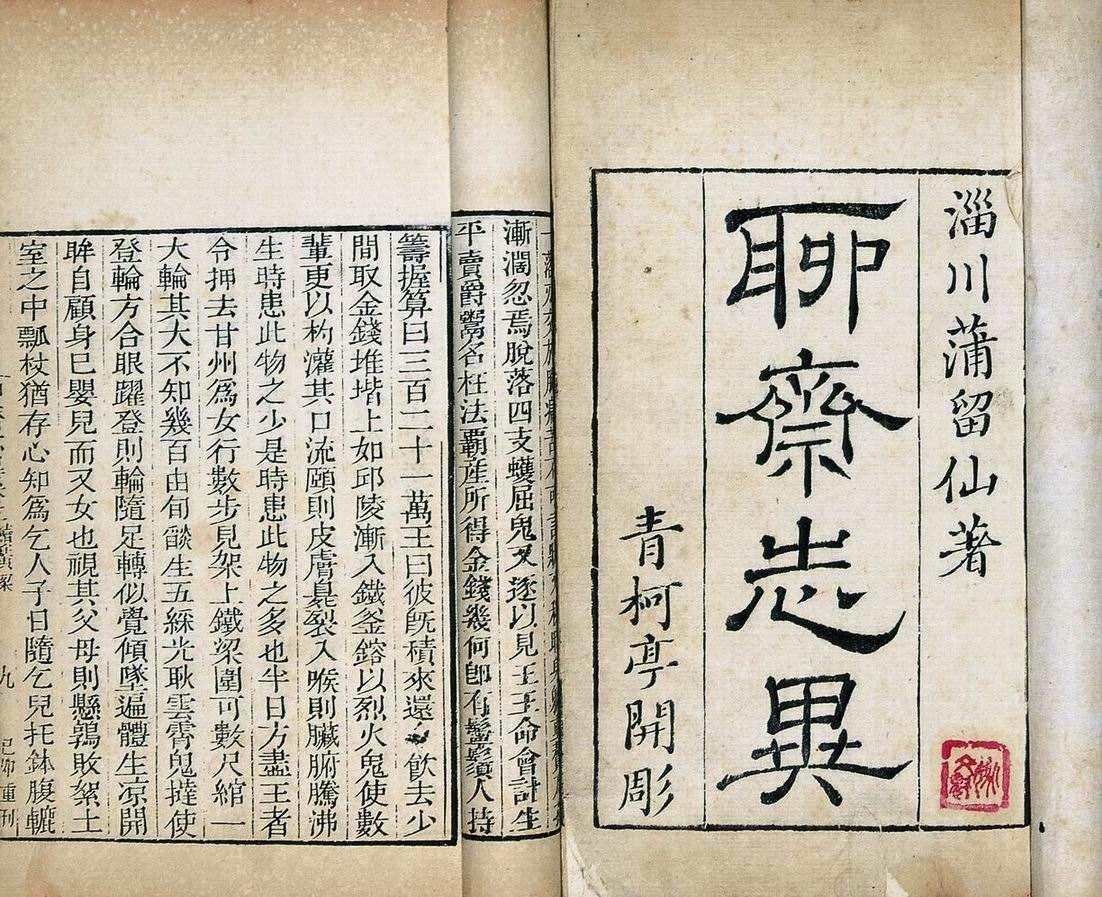 淄川蒲留仙著
聊齋志異
青柯亭開彫
漸潤忽焉脫落四支蠖屈鬼又逐以見王王命會計生
平賣爵鬻名枉法霸產所得金錢幾何卽有鬡鬚人持
籌握算曰三百二十一萬王曰彼旣積來還令飲去少
間取金錢堆堦上如邱陵漸入鐵釜鎔以烈火鬼使數
輩更以杓灌其口流頤則皮膚臭裂入喉則臟腑騰沸
生時患此物之少是時患此物之多也半日方盡王者
令押去甘州爲女行數步見架上鐵梁圍可數尺綰一
大輪其大不知幾百由旬燄生五綵光耿雲霄鬼撻使
登輪方合眼躍登則輪隨足轉似覺傾墜遍體生凉開
眸自顧身已嬰兒而又女也視其父母則懸鶉敗絮土
室之中瓢杖猶存心知爲乞人子日隨乞兒托鉢腹轆
續黃粱
九
己卯重刊